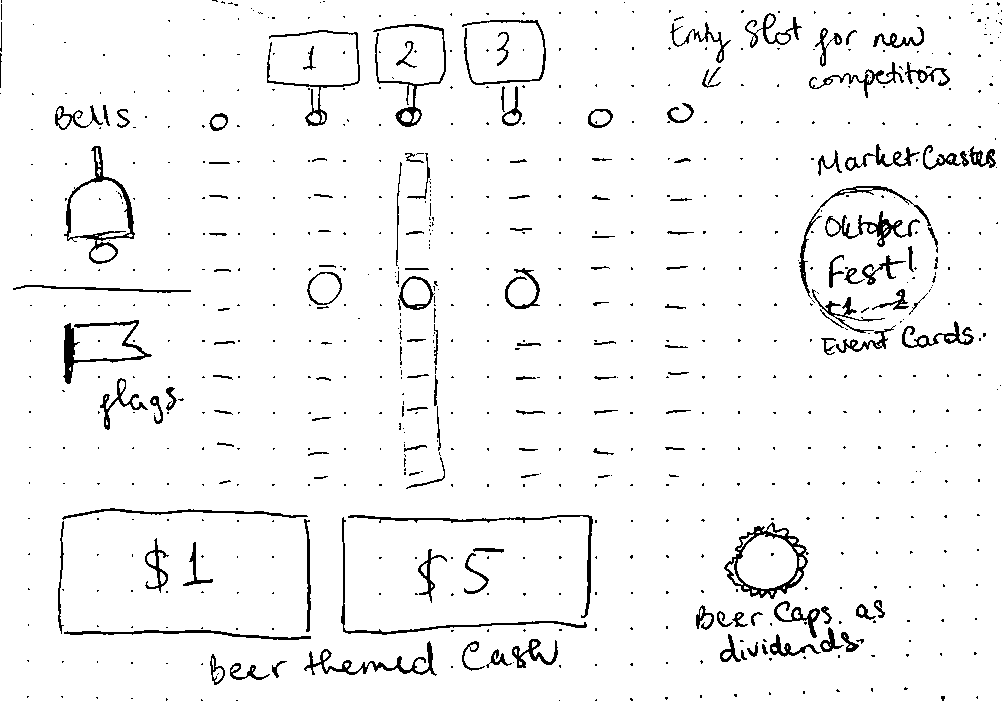 1 2 3
Emty Slot for new
competitors
Bells
Market Coaster
Oktober
Fest!
+1 ... 2
Event Cards.
flags
$1 $5
Beer Caps as
dividends
Beer themed Cash